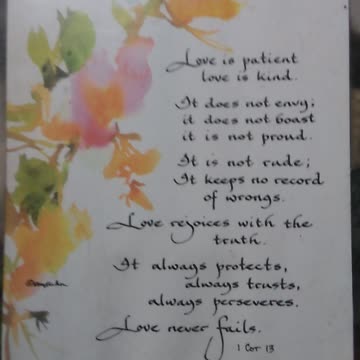 Love is patient
love is kind.
It does not envy;
it does not boast
it is not proud.
It is not rude;
It keeps no record
of wrongs.
Love rejoices with the
truth.
It always protects,
always trusts,
always perseveres.
Love never fails.
1 Cor 13